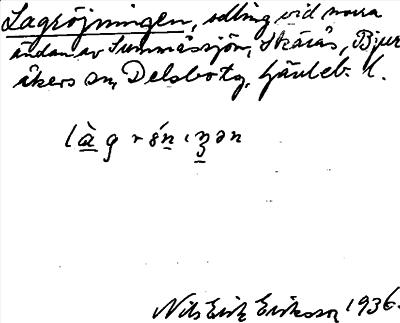 Lagröjningen, odling vid norra
ändan av Summåssjön, Skärås, Bjur
åkers sn, Delsbo tg, Gävleb. l.
Nils Erik Eriksson 1936.